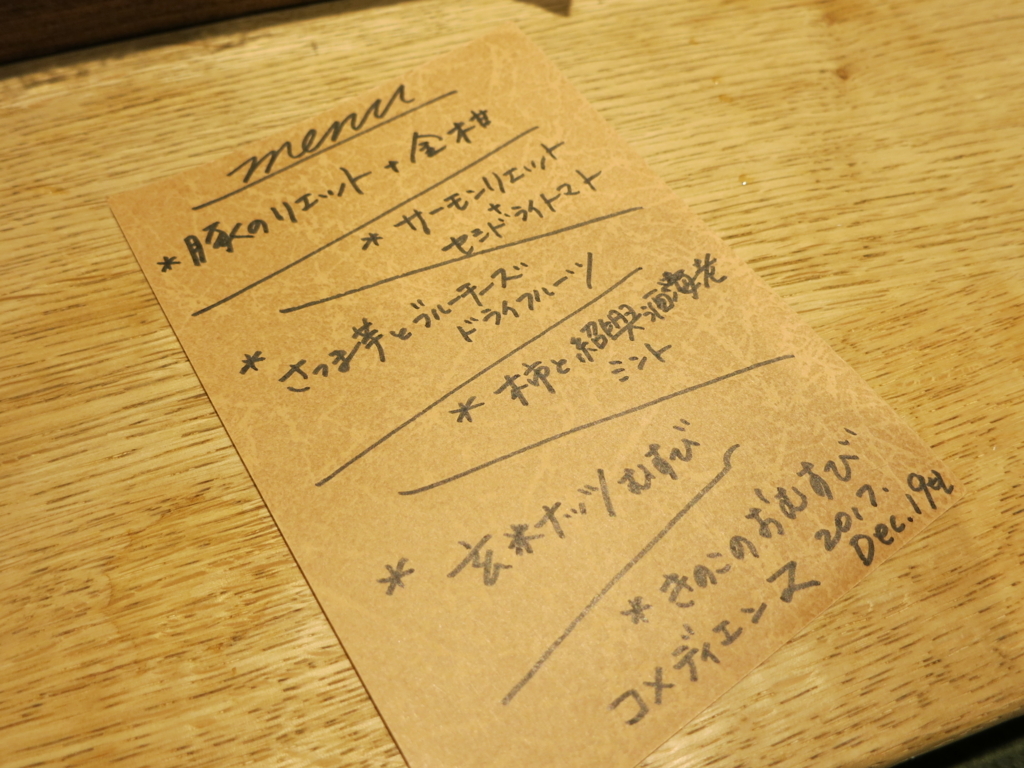 menu
*豚のリエット+金柑
*サーモンリエット
+
セミドライトマト
*さつま芋とブルーチーズ
ドライフルーツ
*柿と紹興酒海老
ミント
*玄米ナッツむすび
*きのこのおむすび
コメディエンヌ 2017.
Dec.19th